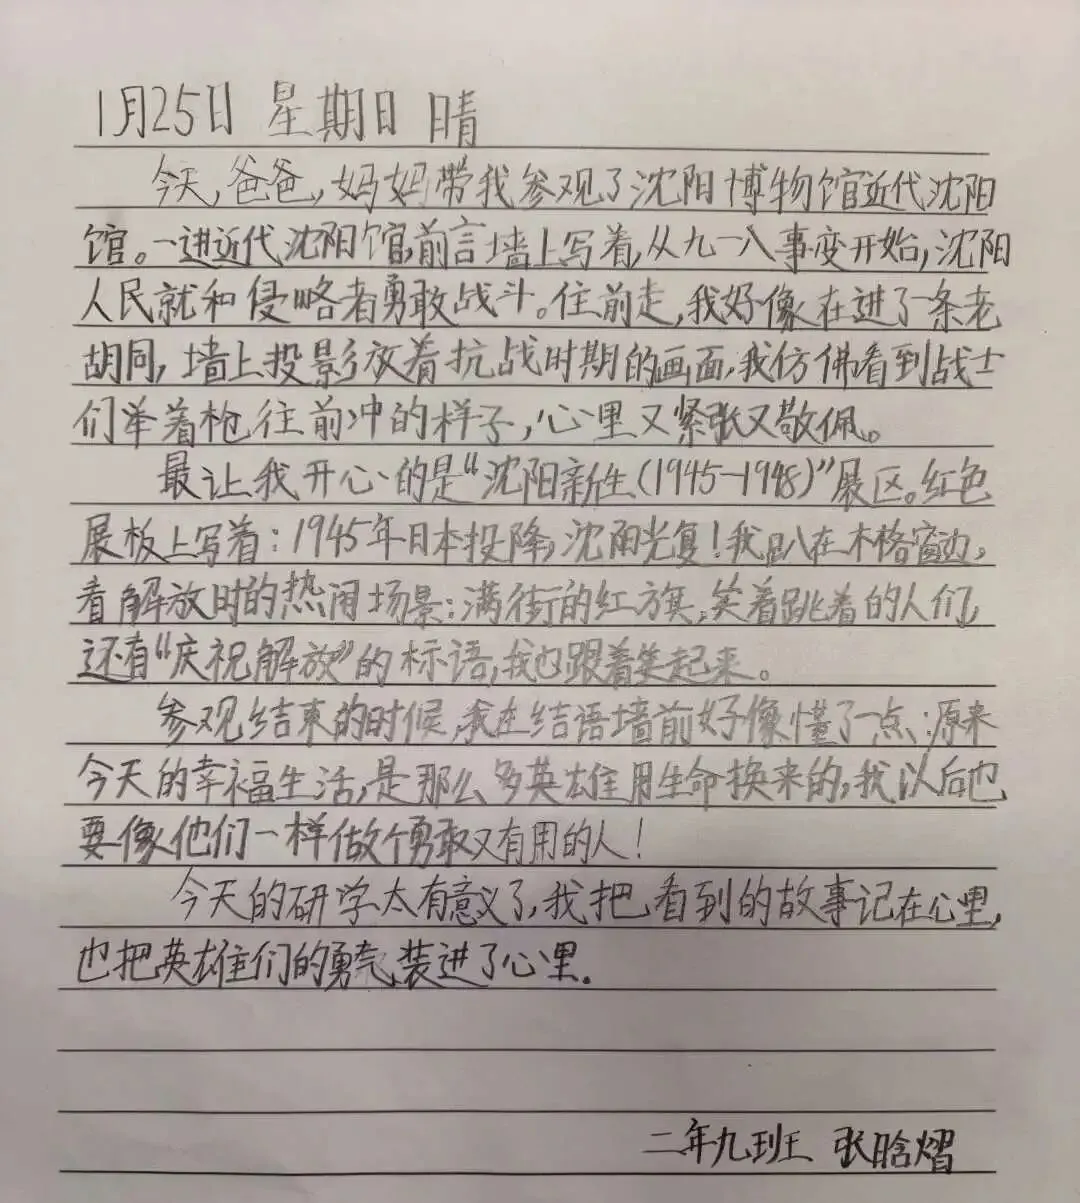 1月25日 星期日 晴
今天,爸爸,妈妈带我参观了沈阳博物馆近代沈阳
馆。一进近代沈阳馆,前言墙上写着,从九一八事变开始,沈阳
人民就和侵略者勇敢战斗。往前走,我好像在进了一条老
胡同,墙上投影放着抗战时期的画面,我仿佛看到战士
们举着枪往前冲的样子,心里又紧张又敬佩。
最让我开心的是“沈阳新生(1945-1948)”展区。红色
展板上写着:1945年日本投降,沈阳光复!我趴在木格窗边,
看解放时的热闹场景:满街的红旗,笑着跳着的人们,
还有“庆祝解放”的标语,我也跟着笑起来。
参观结束的时候,我在结语墙前好像懂了一点:原来
今天的幸福生活,是那么多英雄用生命换来的,我以后也
要像他们一样做个勇敢又有用的人!
今天的研学太有意义了,我把看到的故事记在心里,
也把英雄们的勇气装进了心里.
二年九班 张晗熠